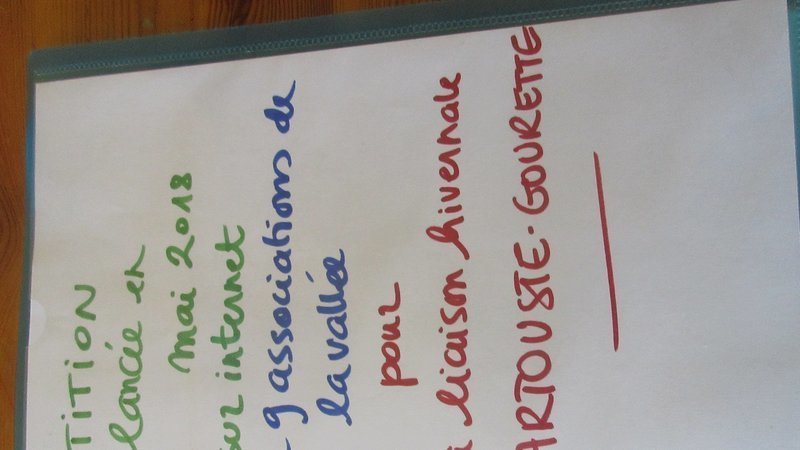 TITION
lancée en
mai 2018
sur internet
9 associations de
la vallée
pour
liaison hivernale
ARTOUSTE-GOURETTE